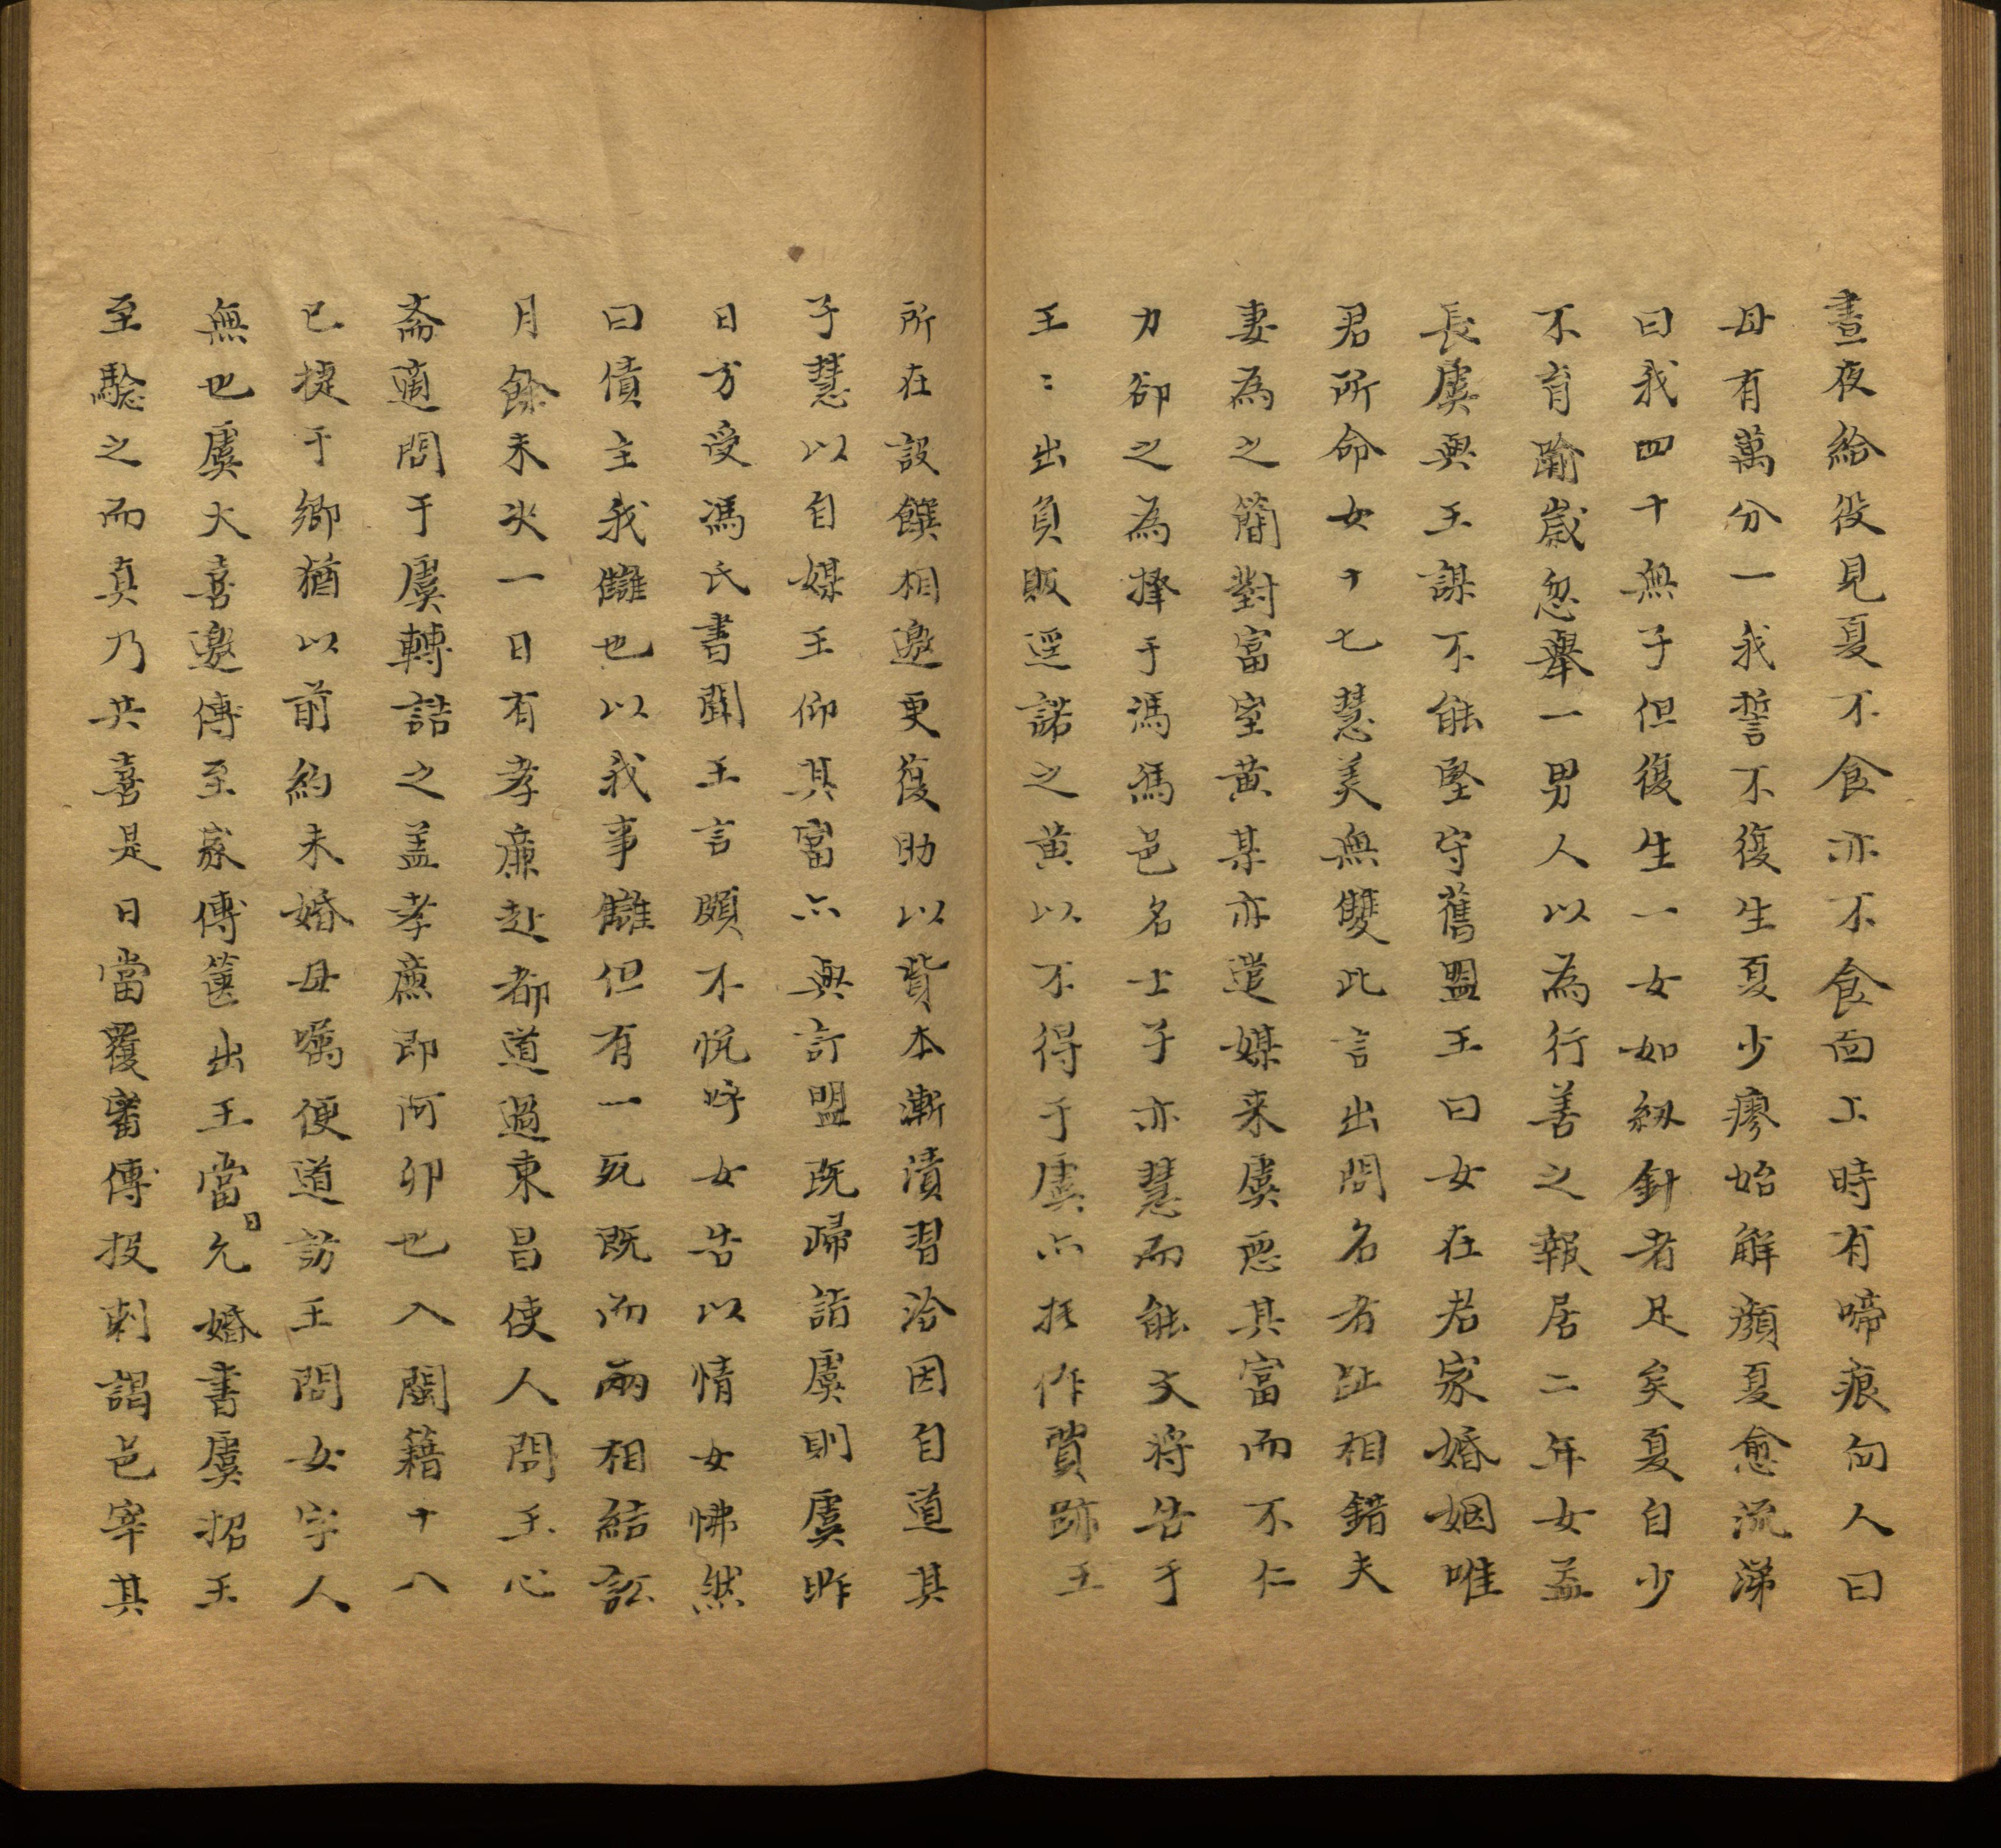 晝夜給役見夏不食亦不食面上時有啼痕向人曰
母有萬分一我誓不復生夏少瘳始解顏夏愈流涕
曰我四十無子但復生一女如紉針者足矣夏自少
不育踰歲忽舉一男人以為行善之報居二年女益
長虞與王謀不能堅守舊盟王曰女在君家婚姻唯
君所命女十七慧美無雙此言出問名者趾相錯夫
妻為之簡對富室黃某亦遣媒来虞惡其富而不仁
力卻之為擇于馮馮邑名士子亦慧而能文将告于
王〻出負販逕諾之黃以不得于虞亦托作賈跡王
所在設饌相邀更復助以貲本漸漬習洽因自道其
子慧以自媒王仰其富亦與訂盟既歸詣虞則虞昨
日方受馮氏書聞王言頗不悦呼女告以情女怫然
曰債主我讎也以我事讎但有一死既而兩相結訟
月餘未决一日有孝廉赴都道過東昌使人問王心
斋適問于虞轉詰之盖孝廉即阿卯也入閩籍十八
已捷于鄉猶以前約未婚母囑便道訪王問女字人
無也虞大喜邀傅至家傅篋出王當日允婚書虞招王
至驗之而真乃共喜是日當覆審傅投刺謁邑宰其